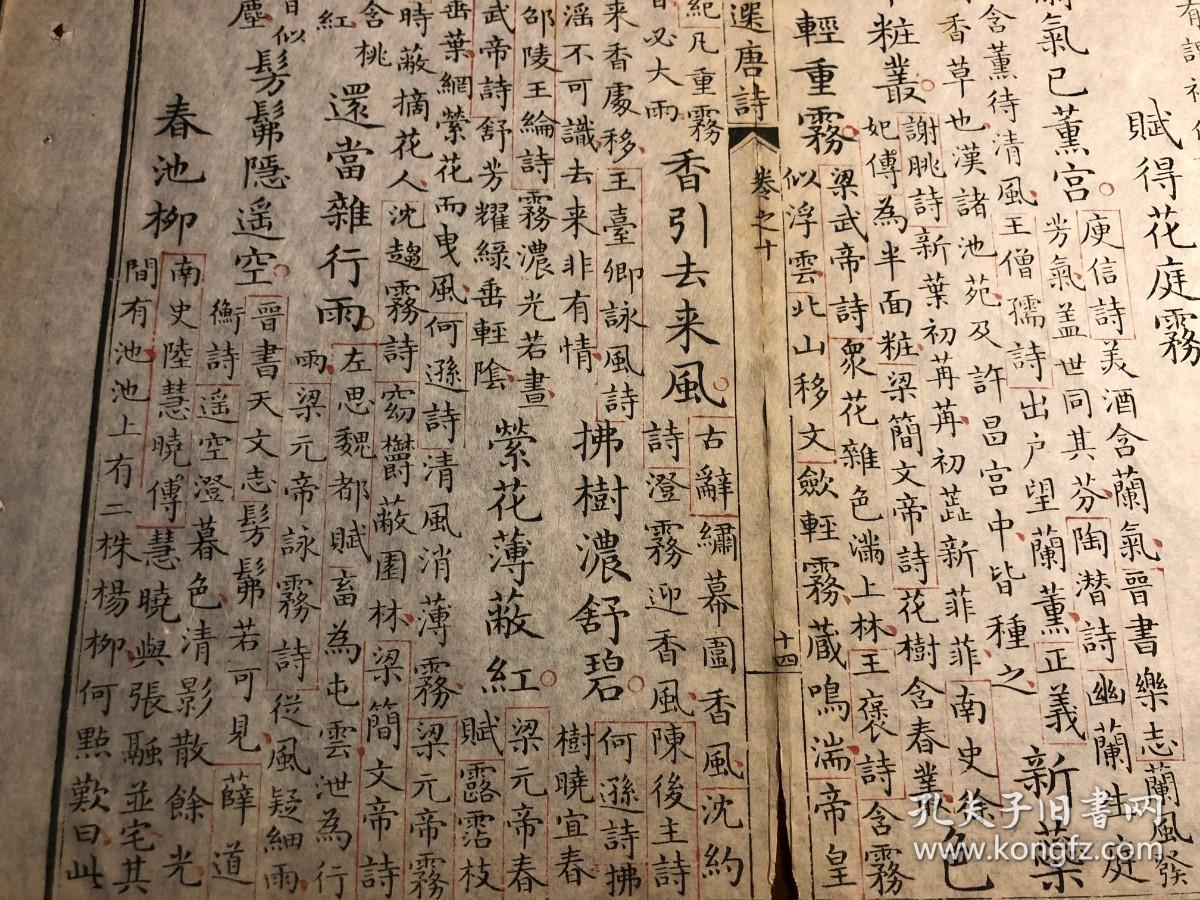 賦得花庭霧
氣已薰宮
庾信詩美酒含蘭氣晉書樂志蘭風發
芳氣盖世同其芬陶潜詩幽蘭生庭
含薰待清風王僧孺詩出户望蘭薰正義
香草也漢諸池苑及許昌宮中皆種之
新蘂
粧叢
謝眺詩新葉初苒苒初蕋新菲菲南史徐
妃傅為半面粧梁簡文帝詩花樹含春叢
色
輕重霧
梁武帝詩衆花雜色滿上林王褒詩含霧
似浮雲北山移文歛輕霧蔵鳴湍帝皇
選唐詩
卷之十
十四
紀凡重霧
必大雨
香引去来風
古辭繡幕圍香風沈約
詩澄霧迎香風陳後主詩
来香處移王臺卿詠風詩
滛不可識去来非有情
拂樹濃舒碧
何遜詩拂
樹曉宜春
邵陵王綸詩霧濃光若晝
武帝詩舒芳耀綠垂輕陰
縈花薄蔽紅
梁元帝春
賦露霑枝
垂葉網縈花而曳風何遜詩清風消薄霧梁元帝霧
時蔽摘花人沈趨霧詩窈欝蔽園林梁簡文帝詩
含桃
紅
還當雜行雨
左思魏都賦畜為屯雲泄為行
雨梁元帝詠霧詩從風疑細雨
似
塵
髣髴隱遥空
晉書天文志髣髴若可見薛道
衡詩遥空澄暮色清影散餘光
春池柳
南史陸慧曉傅慧曉與張融並宅其
間有池池上有二株楊柳何點歎曰此
孔夫子旧書网
www.kongfz.com